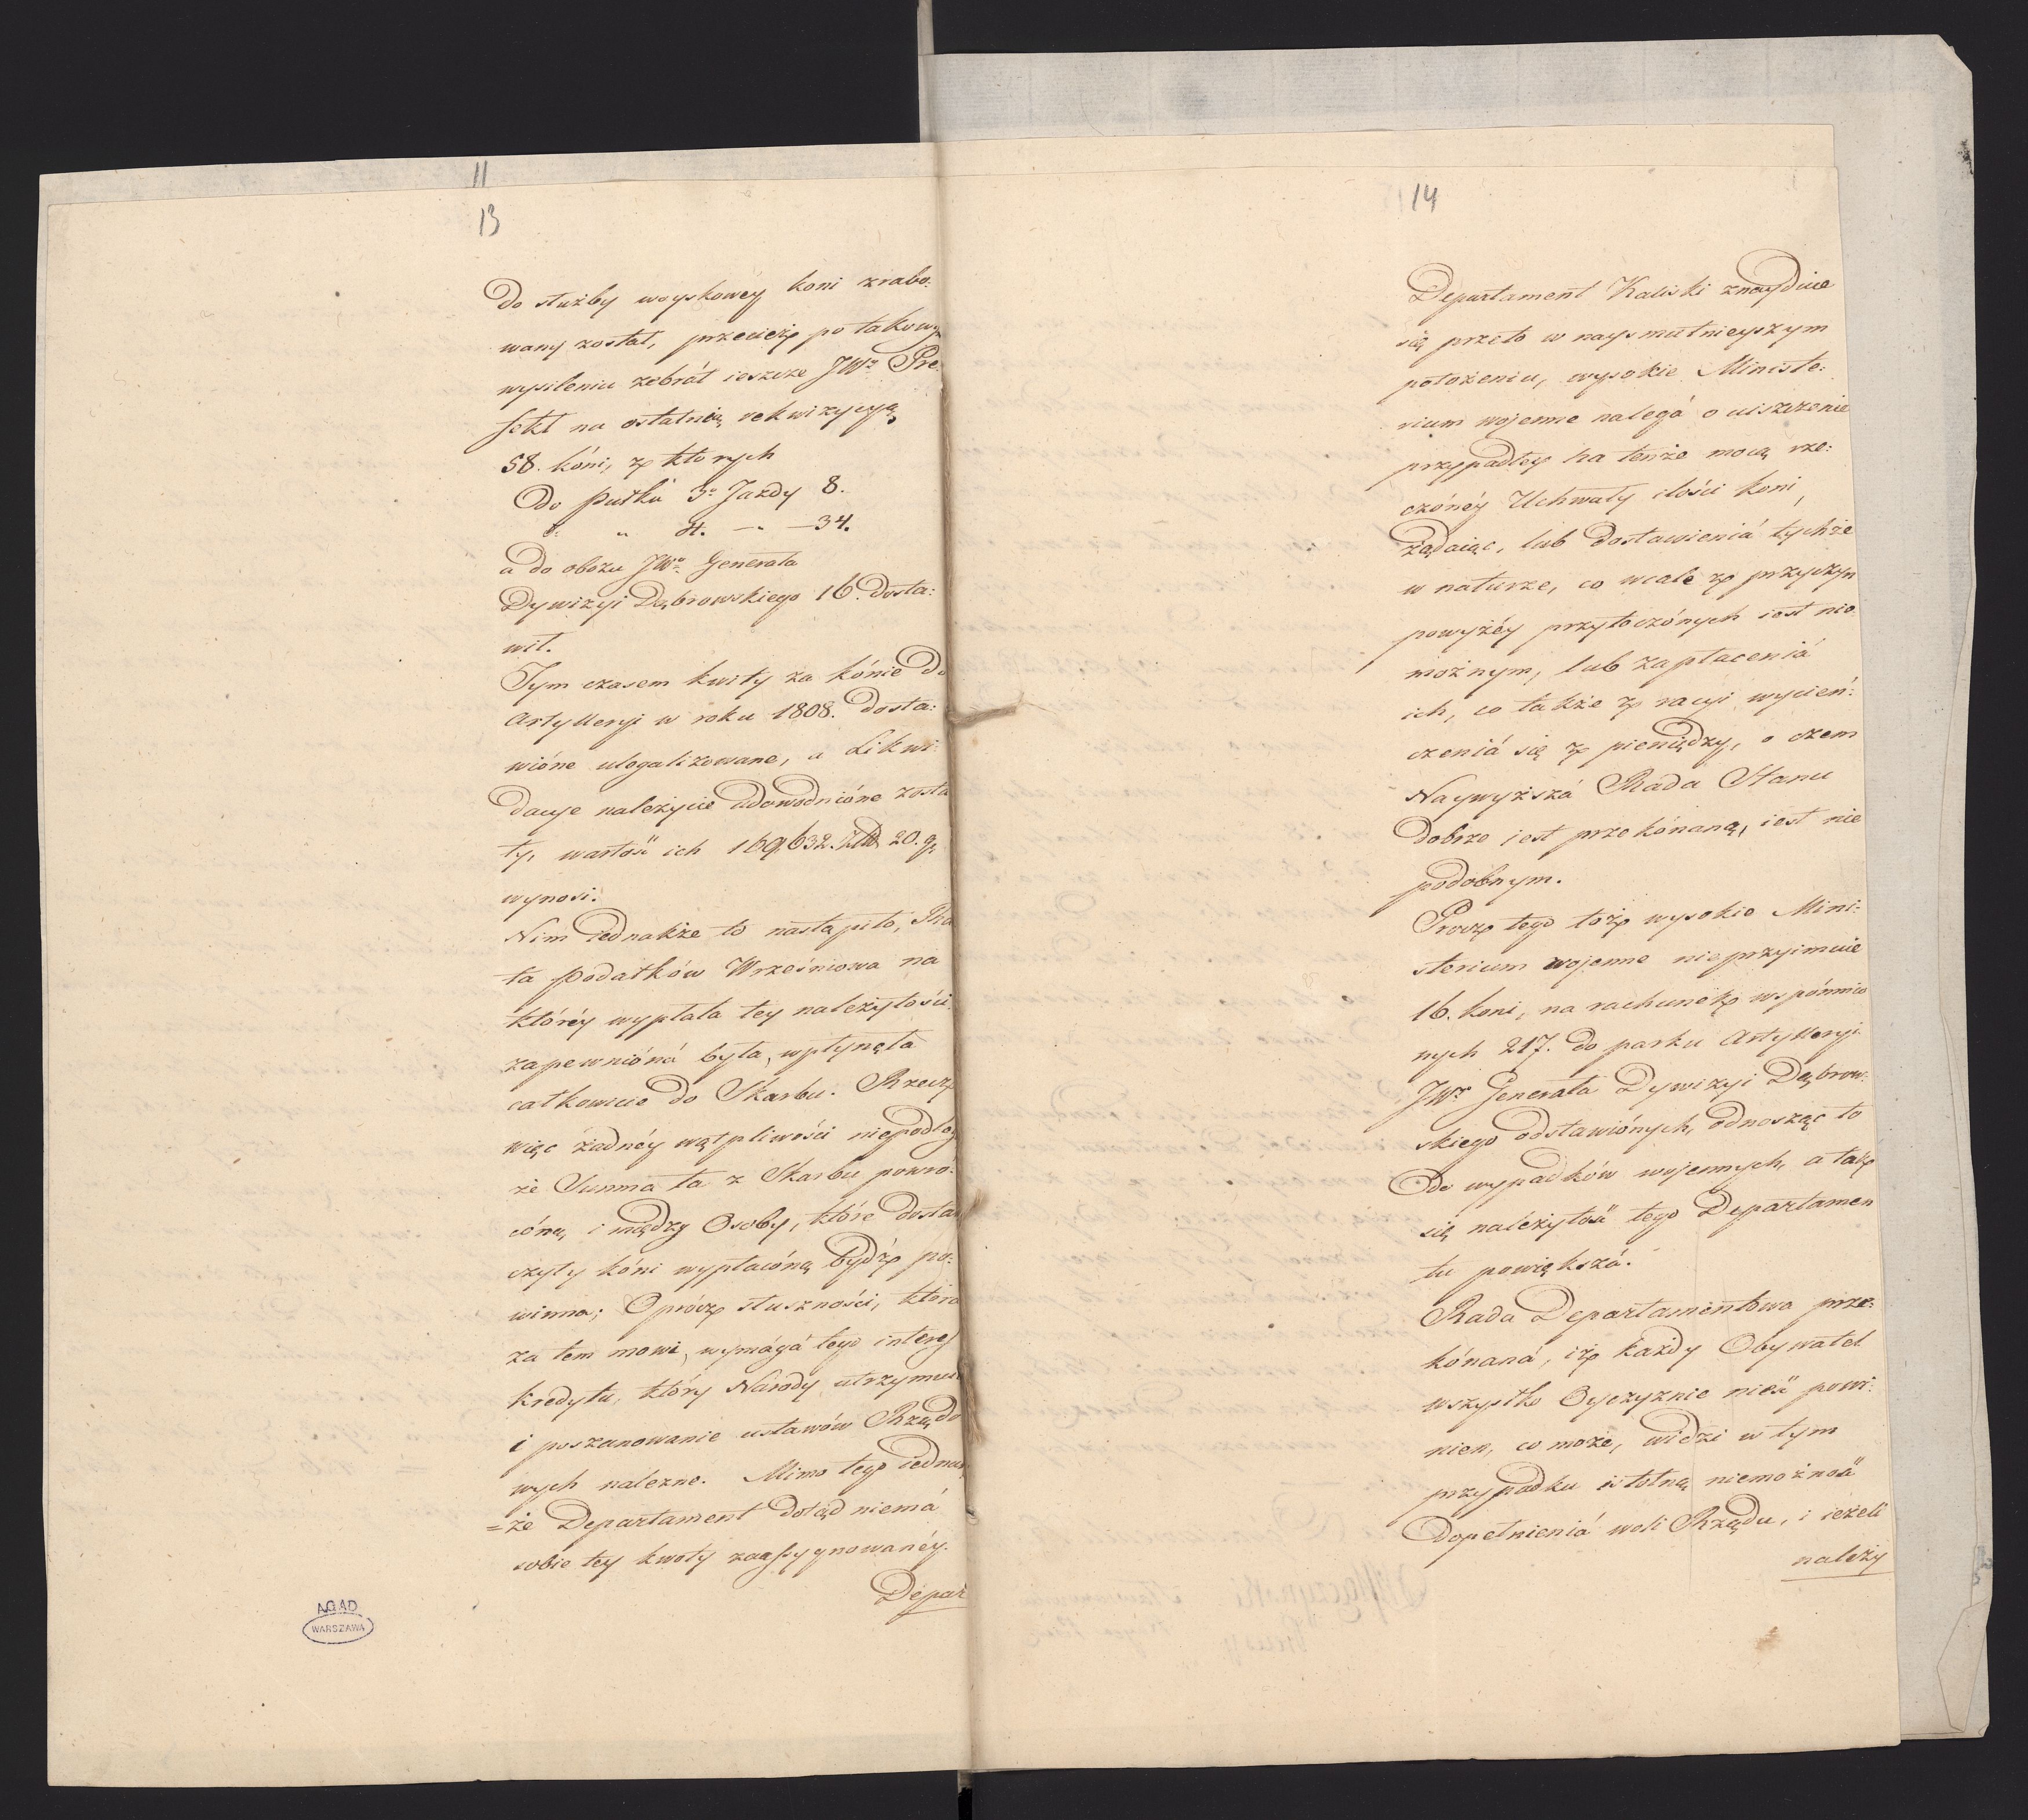 11
13
do służby woyskowéy koni zrabo:
wany został, przecież po takowym
wysileniu zebrał ieszcze JWr Pre
fekt na ostatnią rekwizycyą
58. kóni, z których
Do pułku 3o Jazdy 8.
" " 4. — " — 34.
a do obozu JWo Generała
Dywizyi Dąbrowskiego 16. dosta:
wił.
Tym czasem kwity za kónie do
Artylleryi w roku 1808. dosta:
wióne ulogalizowane, a Likwi:
dacye należycie udowodnióne zosta
ły, wartość ich 169,632. Złł 20. gr
wynosi.
Nim iednakże to nastąpiło, Ra
ta podatków Wrześniowa na
któréy wypłata tey należytości
zapewnióná była, wpłynęła
całkowicie do Skarbu. Rzecz
więc żadnéy wątpliwości niepodleg
że Summa ta z Skarbu powró:
cóną, i między Osoby, które dostar
czyły kóni wypłacóną bydź po:
winna; Oprócz słuszności, która
za tem mowi, wymágá tego interes
kredytu, który Narody utrzymuie
i poszanowanie ustawów Rządo
wych nalezne. Mimo tego iednak
=że Departament dotąd niemá
sobie tey kwoty zaassygnowanéy.
Depar
AGAD
WARSZAWA
14
Departament Kaliski znayduie
się przeto w naysmutnieyszym
położeniu, wysokie Ministe:
rium wojenne nalegá o uiszczenie
przypadłey na tenże mocą rze:
czónéy Uchwały ilości koni,
żądaiąc, lub dostawieniá tychże
w naturze, co wcale z przyczyn
powyżéy przytoczónych iest nie
możnym, lub zapłaceniá
ich, co także z racyi wycień:
czeniá się z pieniędzy, o czem
Naywyższá Rada Stanu
dobrze iest przekónaną, iest nie
podobnym.
Prócz tego toż wysokie Mini:
sterium wojenne nieprzyimuie
16. koni, na rachunek wspómnio
nych 217. do parku Artylleryi
JWo Generała Dywizyi Dąbrow:
skiego odstawiónych, odnosząc to
do wypadków wojennych, a tak
się należytość tego Departamen
tu powiększá.
Rada Departamentowa prze:
kónaná, iż każdy Obywatel
wszystko Oyczyznie nieść powi:
nien, co może, widzi w tym
przypadku istotną niemożność
dopełnieniá woli Rządu, i ieżeli
należy